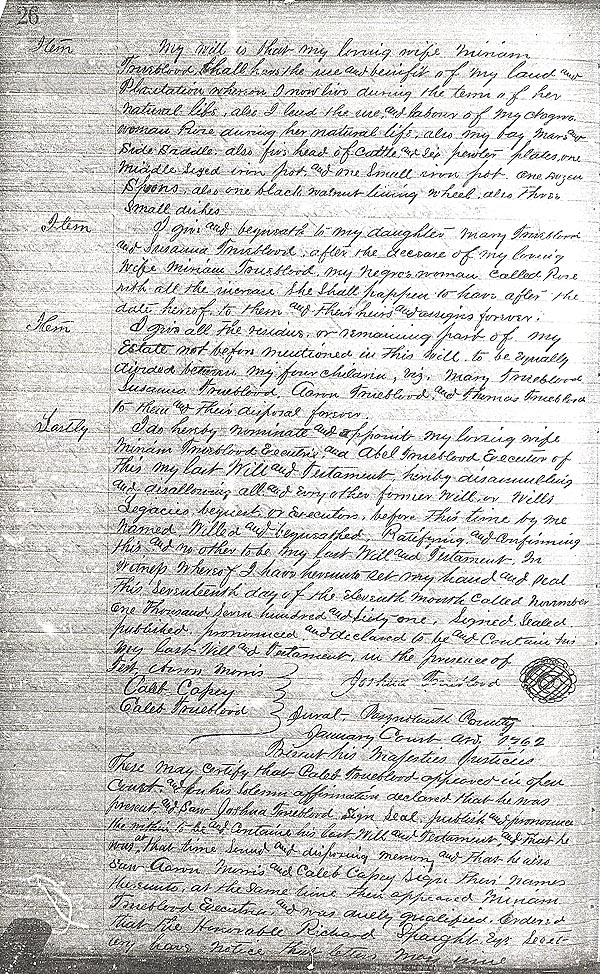 26
Item My will is that my loving wife Miriam
Trueblood Shall have the use and benifit of my land and
Plantation whereon I now live during the term of her
natural life, also I lend the use, and labour of my Negro
woman Rose during her natural life, also my bay Mare and
Side Saddle, also five head of Cattle and Six pewter plates, one
Middle Sized iron pot, and one Small iron pot. One dozen
Spoons, also one black walnut lining wheel, also three
Small dishes
Item I give and bequeath to my daughter Mary Trueblood
and Susanna Trueblood, after the decease of my loving
Wife Miriam Trueblood, my Negro woman Called Rose
with all the increase She Shall happen to have after the
date hereof, to them and their heirs and assigns forever.
Item I give all the residue, or remaining part of my
Estate not before mentioned in this will, to be Equally
divided between my four children, viz. Mary Trueblood
Susanna Trueblood, Aaron Trueblood and Thomas Trueblood
to them and their disposal forever.
Lastly I do hereby nominate and appoint my loving wife
Miriam Trueblood Executrix and Abel Trueblood Executor of
this my last Will and Testament, hereby disannulling
and disallowing all and Every other former Will or Wills
Legacies, bequests or Executors, before this time by me
Named, Willed and bequeathed, Ratifying and Confirming
this and no other to be my last Will and Testament. In
Witness Whereof I have hereunto Set my hand and Seal
This Seventeenth day of the Eleventh Month Called November
One thousand Seven hundred and Sixty one, Signed Sealed
published, pronounced and declared to be and Contain his
My last Will and Testament, in the presence of
Test Aaron Morris
Joshua Trueblood
Caleb Capey
Caleb Trueblood
Jurat, Pasquotank County
January Court AD, 1762
Present his Majesties Justicies
These may certify that Caleb Trueblood appeared in open
Court, and on his Solemn affirmation declared that he was
present and Saw Joshua Trueblood, Sign Seal, publish and pronounce
the within to be and Containe his last Will and Testament, and that he
was at that time Sound and disposing memory and that he also
Saw Aaron Morris and Caleb Capey Sign their names
thereunto, at the Same time then appeared Miriam
Trueblood Executrix, and was duely qualified. Ordered
that the Honorable Richard Spaight Esqr Secret-
ery have notice that letters may issue